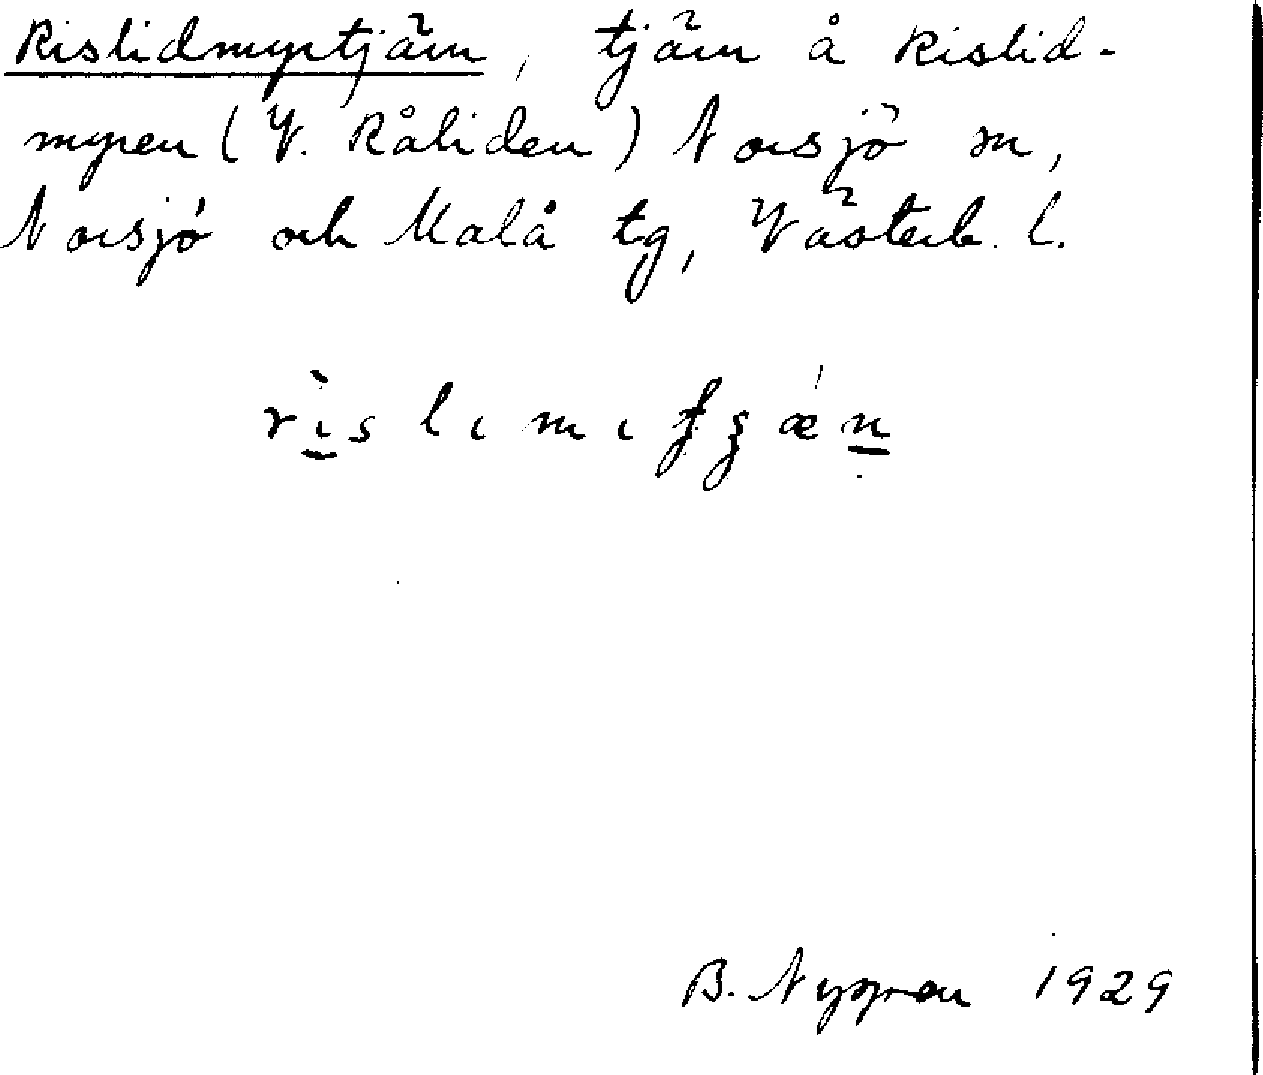 Rislidmyrtjärn, tjärn å Rislid-
myren (V. Råliden) Norsjö sn,
Norsjö och Malå tg, Västerb. l.
B. Nygren 1929